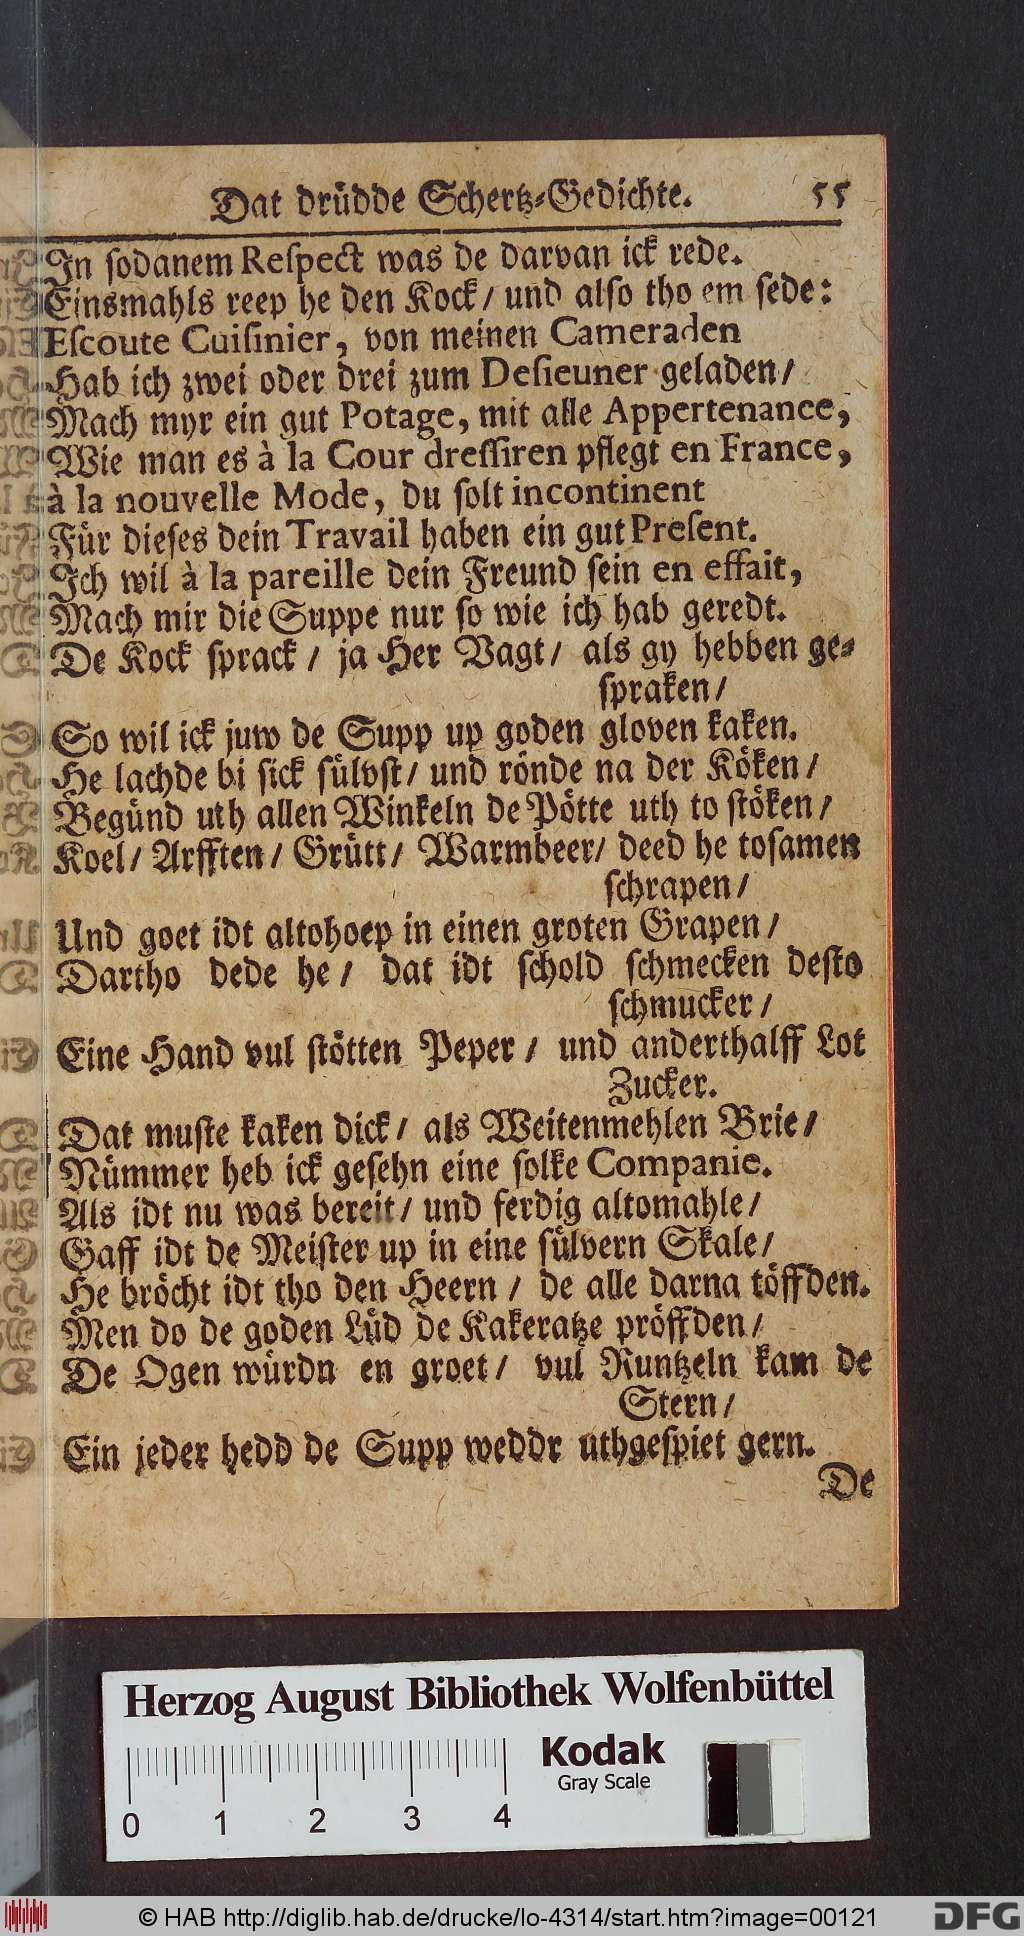 Dat drüdde Schertz-Gedichte. 55
In sodanem Respect was de darvan ick rede.
Einsmahls reep he den Kock / und also tho em sede:
Escoute Cuisinier, von meinen Cameraden
Hab ich zwei oder drei zum Desieuner geladen /
Mach myr ein gut Potage, mit alle Appertenance,
Wie man es à la Cour dressiren pflegt en France,
à la nouvelle Mode, du solt incontinent
Für dieses dein Travail haben ein gut Present.
Ich wil à la pareille dein Freund sein en effait,
Mach mir die Suppe nur so wie ich hab geredt.
De Kock sprack / ja Her Vagt / als gy hebben ge-
spraken /
So wil ick juw de Supp up goden gloven kaken.
He lachde bi sick sülvst / und rönde na der Köken /
Begünd uth allen Winkeln de Pötte uth to stöken /
Koel / Arfften / Grütt / Warmbeer / deed he tosamen
schrapen /
Und goet idt altohoep in einen groten Grapen /
Dartho dede he / dat idt schold schmecken desto
schmucker /
Eine Hand vul stötten Peper / und anderthalff Lot
Zucker.
Dat muste kaken dick / als Weitenmehlen Brie /
Nümmer heb ick gesehn eine solke Companie.
Als idt nu was bereit / und ferdig altomahle /
Gaff idt de Meister up in eine sülvern Skale /
He bröcht idt tho den Heern / de alle darna töffden.
Men do de goden Lüd de Kakeratze pröffden /
De Ogen würdn en groet / vul Runtzeln kam de
Stern /
Ein jeder hedd de Supp weddr uthgespiet gern.
De
Herzog August Bibliothek Wolfenbüttel
Kodak
Gray Scale
0 1 2 3 4
© HAB http://diglib.hab.de/drucke/lo-4314/start.htm?image=00121
DFG